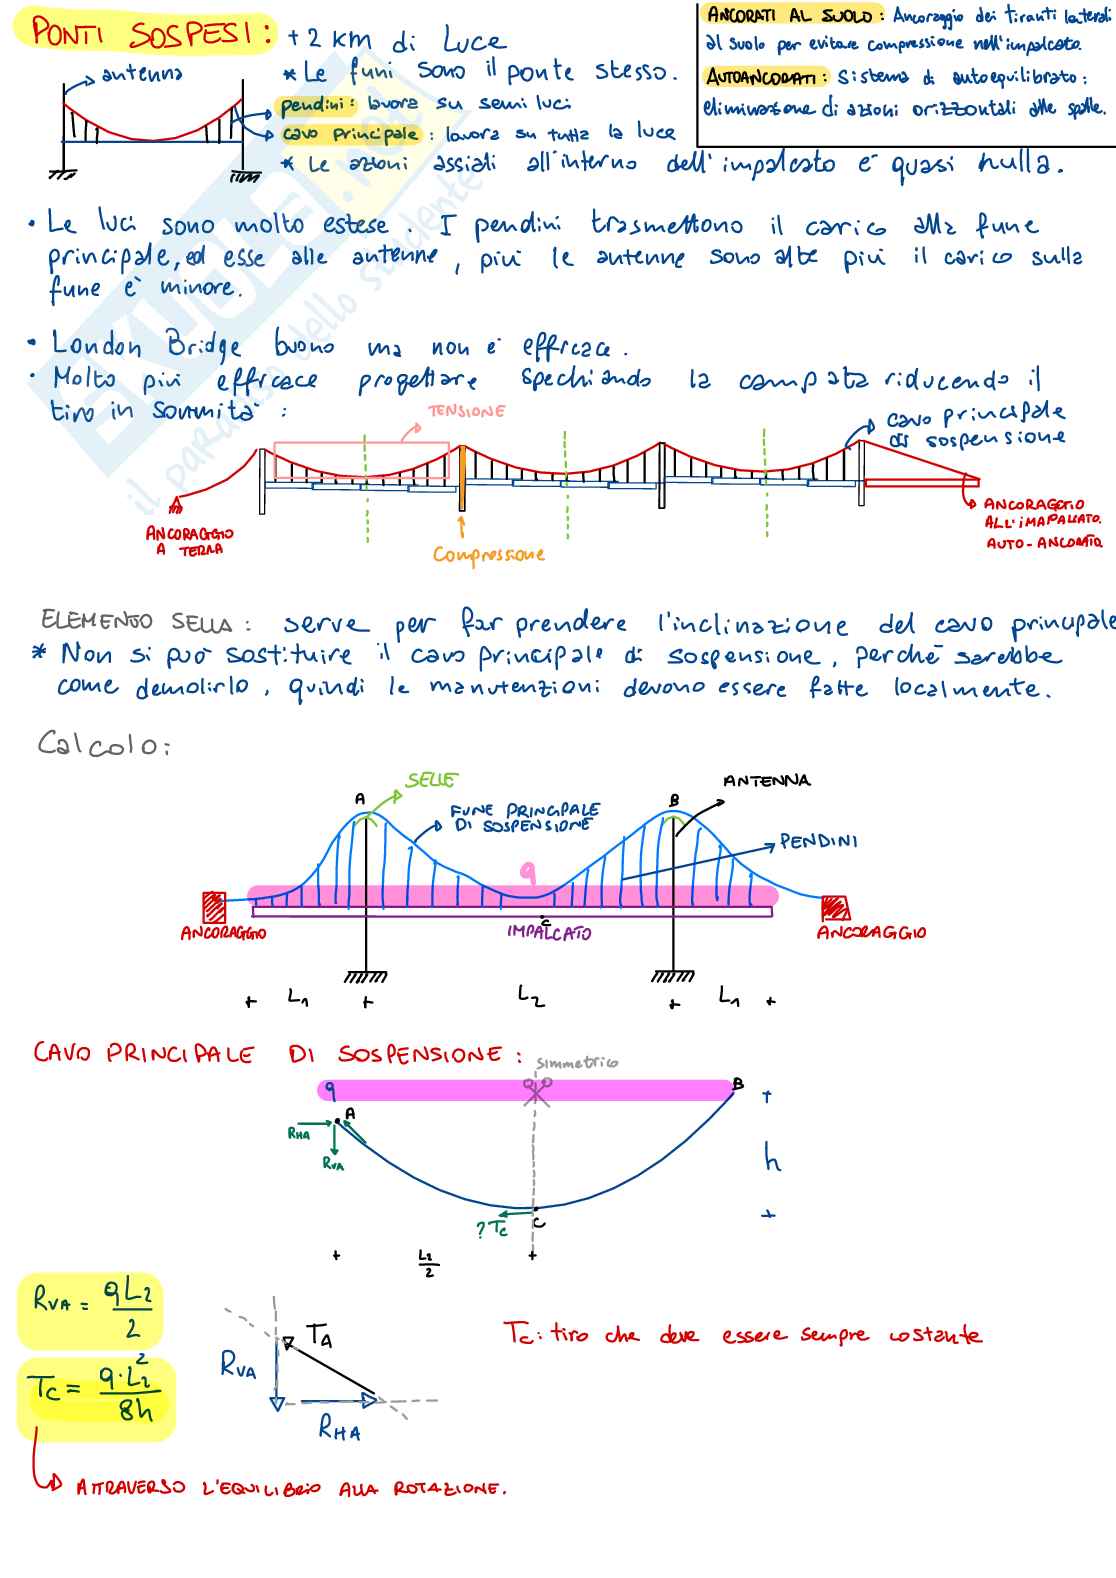 PONTI SOSPESI: +2 km di Luce
antenna
* Le funi sono il ponte stesso.
pendini: lavora su semi luci
cavo principale: lavora su tutta la luce
* Le azioni assiali all'interno dell'impalcato è quasi nulla.
ANCORATI AL SUOLO: Ancoraggio dei tiranti laterali
al suolo per evitare compressione nell'impalcato.
AUTOANCORATI: Sistema di autoequilibrato:
eliminazione di azioni orizzontali alle spalle.
• Le luci sono molto estese. I pendini trasmettono il carico alla fune
principale, ed esse alle antenne, più le antenne sono alte più il carico sulla
fune è minore.
• London Bridge buono ma non è efficace.
• Molto più efficace progettare spechiando la campata riducendo il
tiro in sommità:
TENSIONE
cavo principale
di sospensione
ANCORAGGIO
A TERRA
Compressione
ANCORAGGIO
ALL'IMAPALCATO.
AUTO-ANCORATO
ELEMENTO SELLA: serve per far prendere l'inclinazione del cavo principale
* Non si può sostituire il cavo principale di sospensione, perchè sarebbe
come demolirlo, quindi le manutenzioni devono essere fatte localmente.
Calcolo:
SELLE
ANTENNA
A
B
FUNE PRINCIPALE
DI SOSPENSIONE
PENDINI
q
C
ANCORAGGIO
IMPALCATO
ANCORAGGIO
+ L1 + L2 + L1 +
CAVO PRINCIPALE DI SOSPENSIONE:
simmetrico
q
B
A
RHA
RVA
h
?Tc
C
+ L2/2 +
RVA = qL2/2
TA
Tc: tiro che deve essere sempre costante
RVA
Tc = q·L2²/8h
RHA
ATTRAVERSO L'EQUILIBRIO ALLA ROTAZIONE.